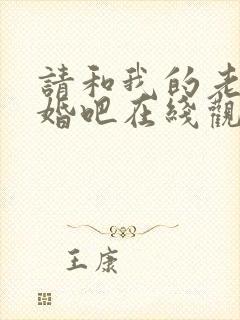 請和我的老
婚吧在綫觀
王康